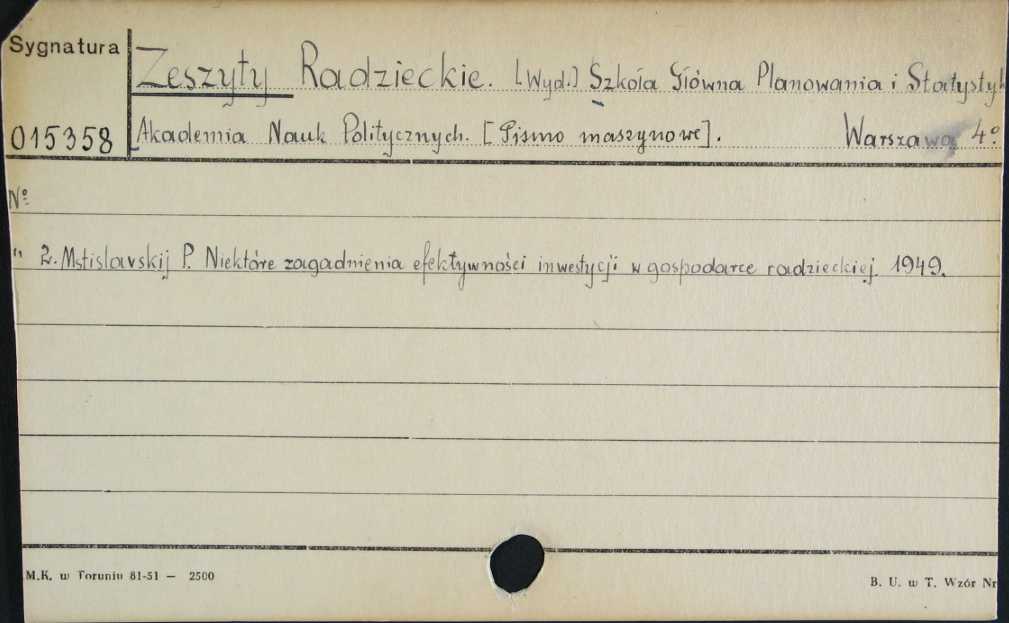 Sygnatura
Zeszyty Radzieckie. [Wyd.] Szkoła Główna Planowania i Statystyk
015358 Akademia Nauk Politycznych. [Pismo maszynowe]. Warszawa 4°
Nº
" 2. Mstislavskij P. Niektóre zagadnienia efektywności inwestycji w gospodarce radzieckiej. 1949.
M.K. w Toruniu 81-51 — 2500
B. U. w T. Wzór Nr